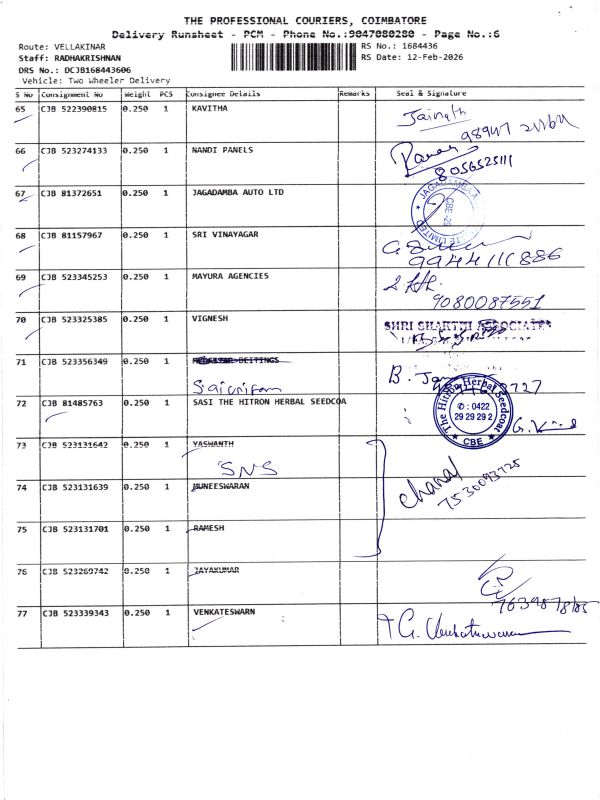 THE PROFESSIONAL COURIERS, COIMBATORE
Delivery Runsheet - PCM - Phone No.:9047080280 - Page No.:6
Route: VELLAKINAR
RS No.: 1684436
Staff: RADHAKRISHNAN
RS Date: 12-Feb-2026
DRS No.: DCJB168443606
Vehicle: Two Wheeler Delivery
S No Consignment No Weight PCS Consignee Details Remarks Seal & Signature
65 CJB 522390815 0.250 1 KAVITHA
Jainath
66 CJB 523274133 0.250 1 NANDI PANELS
8056525111
67 CJB 81372651 0.250 1 JAGADAMBA AUTO LTD
JAGADAMBAA
CBE-29
LIMITED
68 CJB 81157967 0.250 1 SRI VINAYAGAR
9944111886
69 CJB 523345253 0.250 1 MAYURA AGENCIES
9080087551
70 CJB 523325385 0.250 1 VIGNESH
SHRI SHAKTHI ASSOCIATES
71 CJB 523356349 0.250 1
B.
72 CJB 81485763 0.250 1 SASI THE HITRON HERBAL SEEDCOA
The Hitron Herbal Seedcoat
✆ : 0422
29 29 29 2
★ CBE ★
73 CJB 523131642 0.250 1 YASWANTH
SNS
74 CJB 523131639 0.250 1 MUNEESWARAN
7530093725
75 CJB 523131701 0.250 1 RAMESH
76 CJB 523269742 0.250 1 JAYAKUMAR
77 CJB 523339343 0.250 1 VENKATESWARN